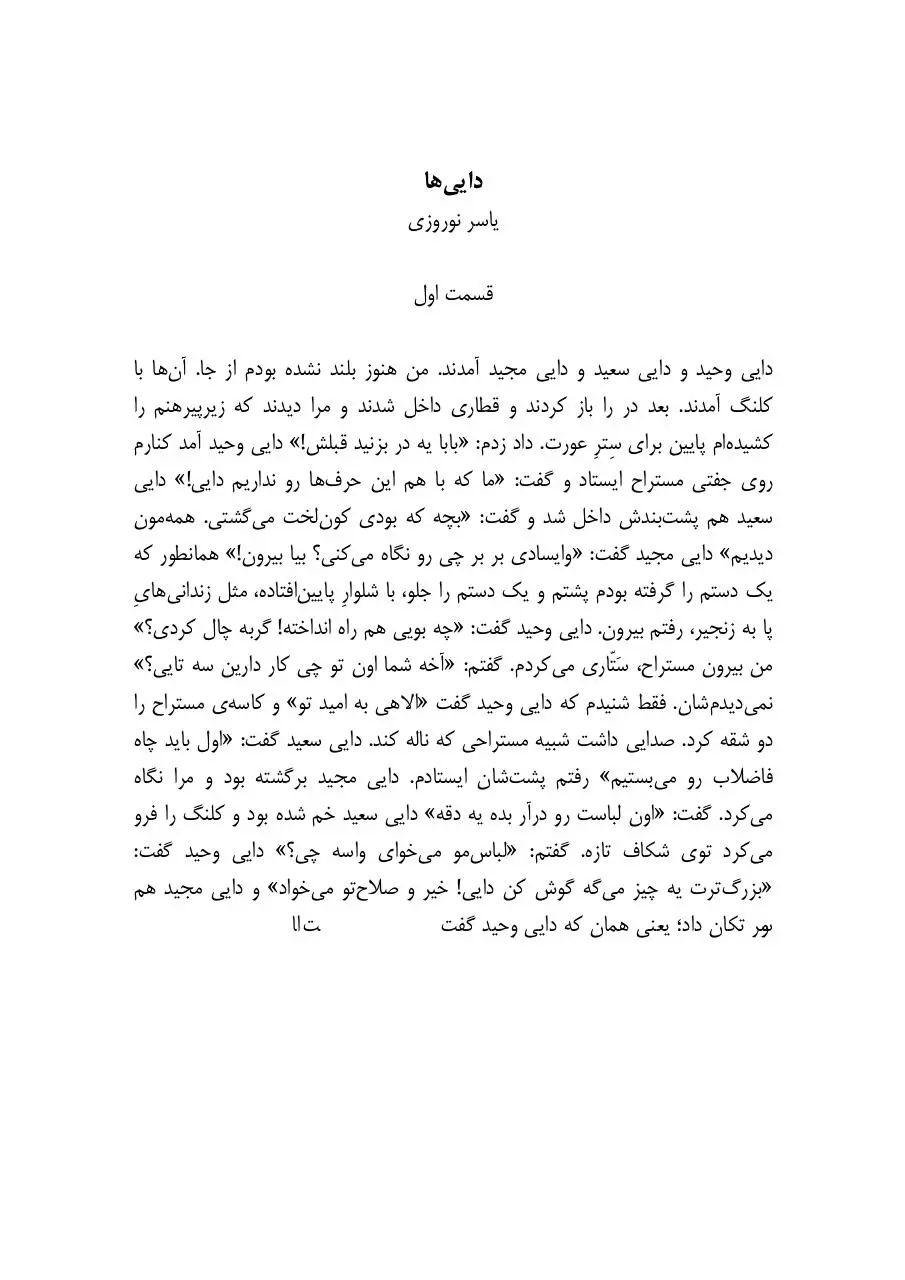 دایی‌ها
یاسر نوروزی
قسمت اول
دایی وحید و دایی سعید و دایی مجید آمدند. من هنوز بلند نشده بودم از جا. آن‌ها با
کلنگ آمدند. بعد در را باز کردند و قطاری داخل شدند و مرا دیدند که زیرپیرهنم را
کشیده‌ام پایین برای سِترِ عورت. داد زدم: «بابا یه در بزنید قبلش!» دایی وحید آمد کنارم
روی جفتی مستراح ایستاد و گفت: «ما که با هم این حرف‌ها رو نداریم دایی!» دایی
سعید هم پشت‌بندش داخل شد و گفت: «بچه که بودی کون‌لخت می‌گشتی. همه‌مون
دیدیم» دایی مجید گفت: «وایسادی بر بر چی رو نگاه می‌کنی؟ بیا بیرون!» همانطور که
یک دستم را گرفته بودم پشتم و یک دستم را جلو، با شلوارِ پایین‌افتاده، مثل زندانی‌هایِ
پا به زنجیر، رفتم بیرون. دایی وحید گفت: «چه بویی هم راه انداخته! گربه چال کردی؟»
من بیرون مستراح، سَتّاری می‌کردم. گفتم: «آخه شما اون تو چی کار دارین سه تایی؟»
نمی‌دیدم‌شان. فقط شنیدم که دایی وحید گفت «الاهی به امید تو» و کاسه‌ی مستراح را
دو شقه کرد. صدایی داشت شبیه مستراحی که ناله کند. دایی سعید گفت: «اول باید چاه
فاضلاب رو می‌بستیم» رفتم پشت‌شان ایستادم. دایی مجید برگشته بود و مرا نگاه
می‌کرد. گفت: «اون لباست رو درآر بده یه دقه» دایی سعید خم شده بود و کلنگ را فرو
می‌کرد توی شکاف تازه. گفتم: «لباس‌مو می‌خوای واسه چی؟» دایی وحید گفت:
«بزرگ‌ترت یه چیز می‌گه گوش کن دایی! خیر و صلاح‌تو می‌خواد» و دایی مجید هم
تکان داد؛ یعنی همان که دایی وحید گفت